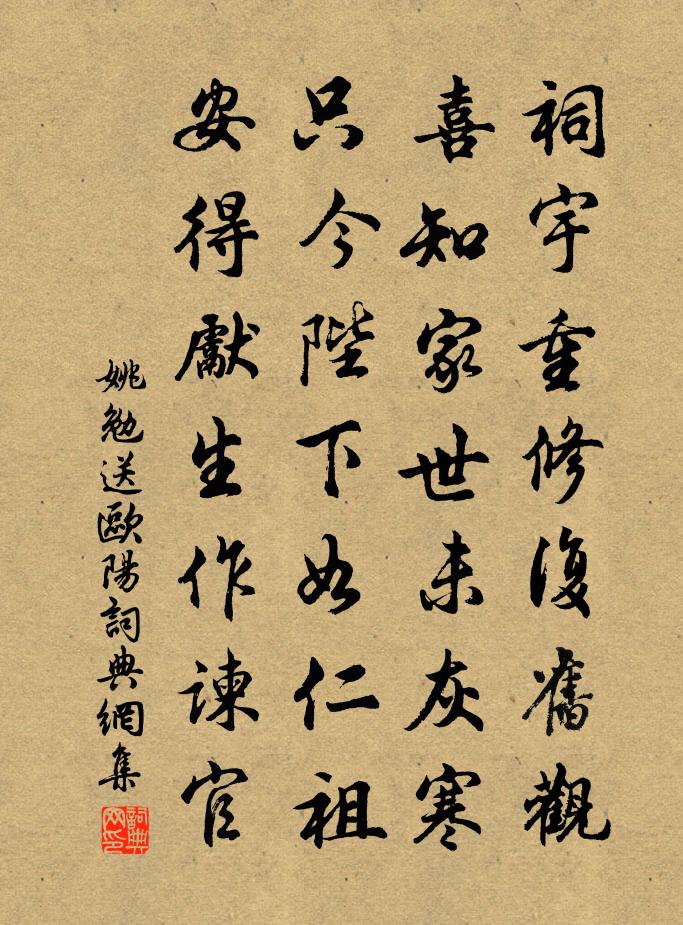 祠宇重修復舊觀
喜知家世未灰寒
只今陛下如仁祖
安得獻生作諫官
姚勉送歐陽詞典網集
詞典網印